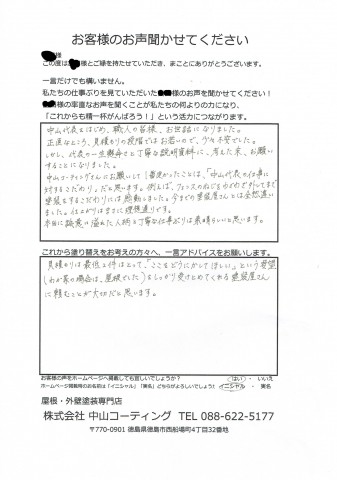 お客様のお声聞かせてください
様
この度は 様とご縁を持たせていただき、まことにありがとうございます。
一言だけでも構いません。
私たちの仕事ぶりを見ていただいた 様のお声を聞かせてください！
様の率直なお声を聞くことが私たちの何よりの力になり、
「これからも精一杯がんばろう！」という活力につながります。
中山代表をはじめ、職人の皆様、お世話になりました。
正直なところ、見積もりの段階ではお若いので、少々不安でした。
しかし、代表の一生懸命さと丁寧な説明資料に、考えた末、お願い
することになりました。
中山コーティングさんにお願いして1番良かったことは、「中山代表の仕事に
対するこだわり」だと思います。例えば、フェンスのねじをわざわざ外してまで
塗装をするこだわりには感動しました。今までの塗装屋さんとは全然違い
ました。仕上がりはまさに理想通りです。
本当に誠意に溢れた人柄と丁寧な仕事ぶりは素晴らしいと思います。
これから塗り替えをお考えの方々へ、一言アドバイスをお願いします。
見積もりは最低2件はとって、「ここをどうにかしてほしい」という要望
(わが家の場合は、屋根でした)をしっかり受けとめてくれる塗装屋さん
に頼むことが大切だと思います。
お客様の声をホームページへ掲載しても宜しいでしょうか？ はい ・ いいえ
ホームページ掲載時のお名前は「イニシャル」「実名」どちらがよろしいでしょう！ イニシャル ・ 実名
屋根・外壁塗装専門店
株式会社 中山コーティング TEL 088-622-5177
〒770-0901 徳島県徳島市西船場町4丁目32番地